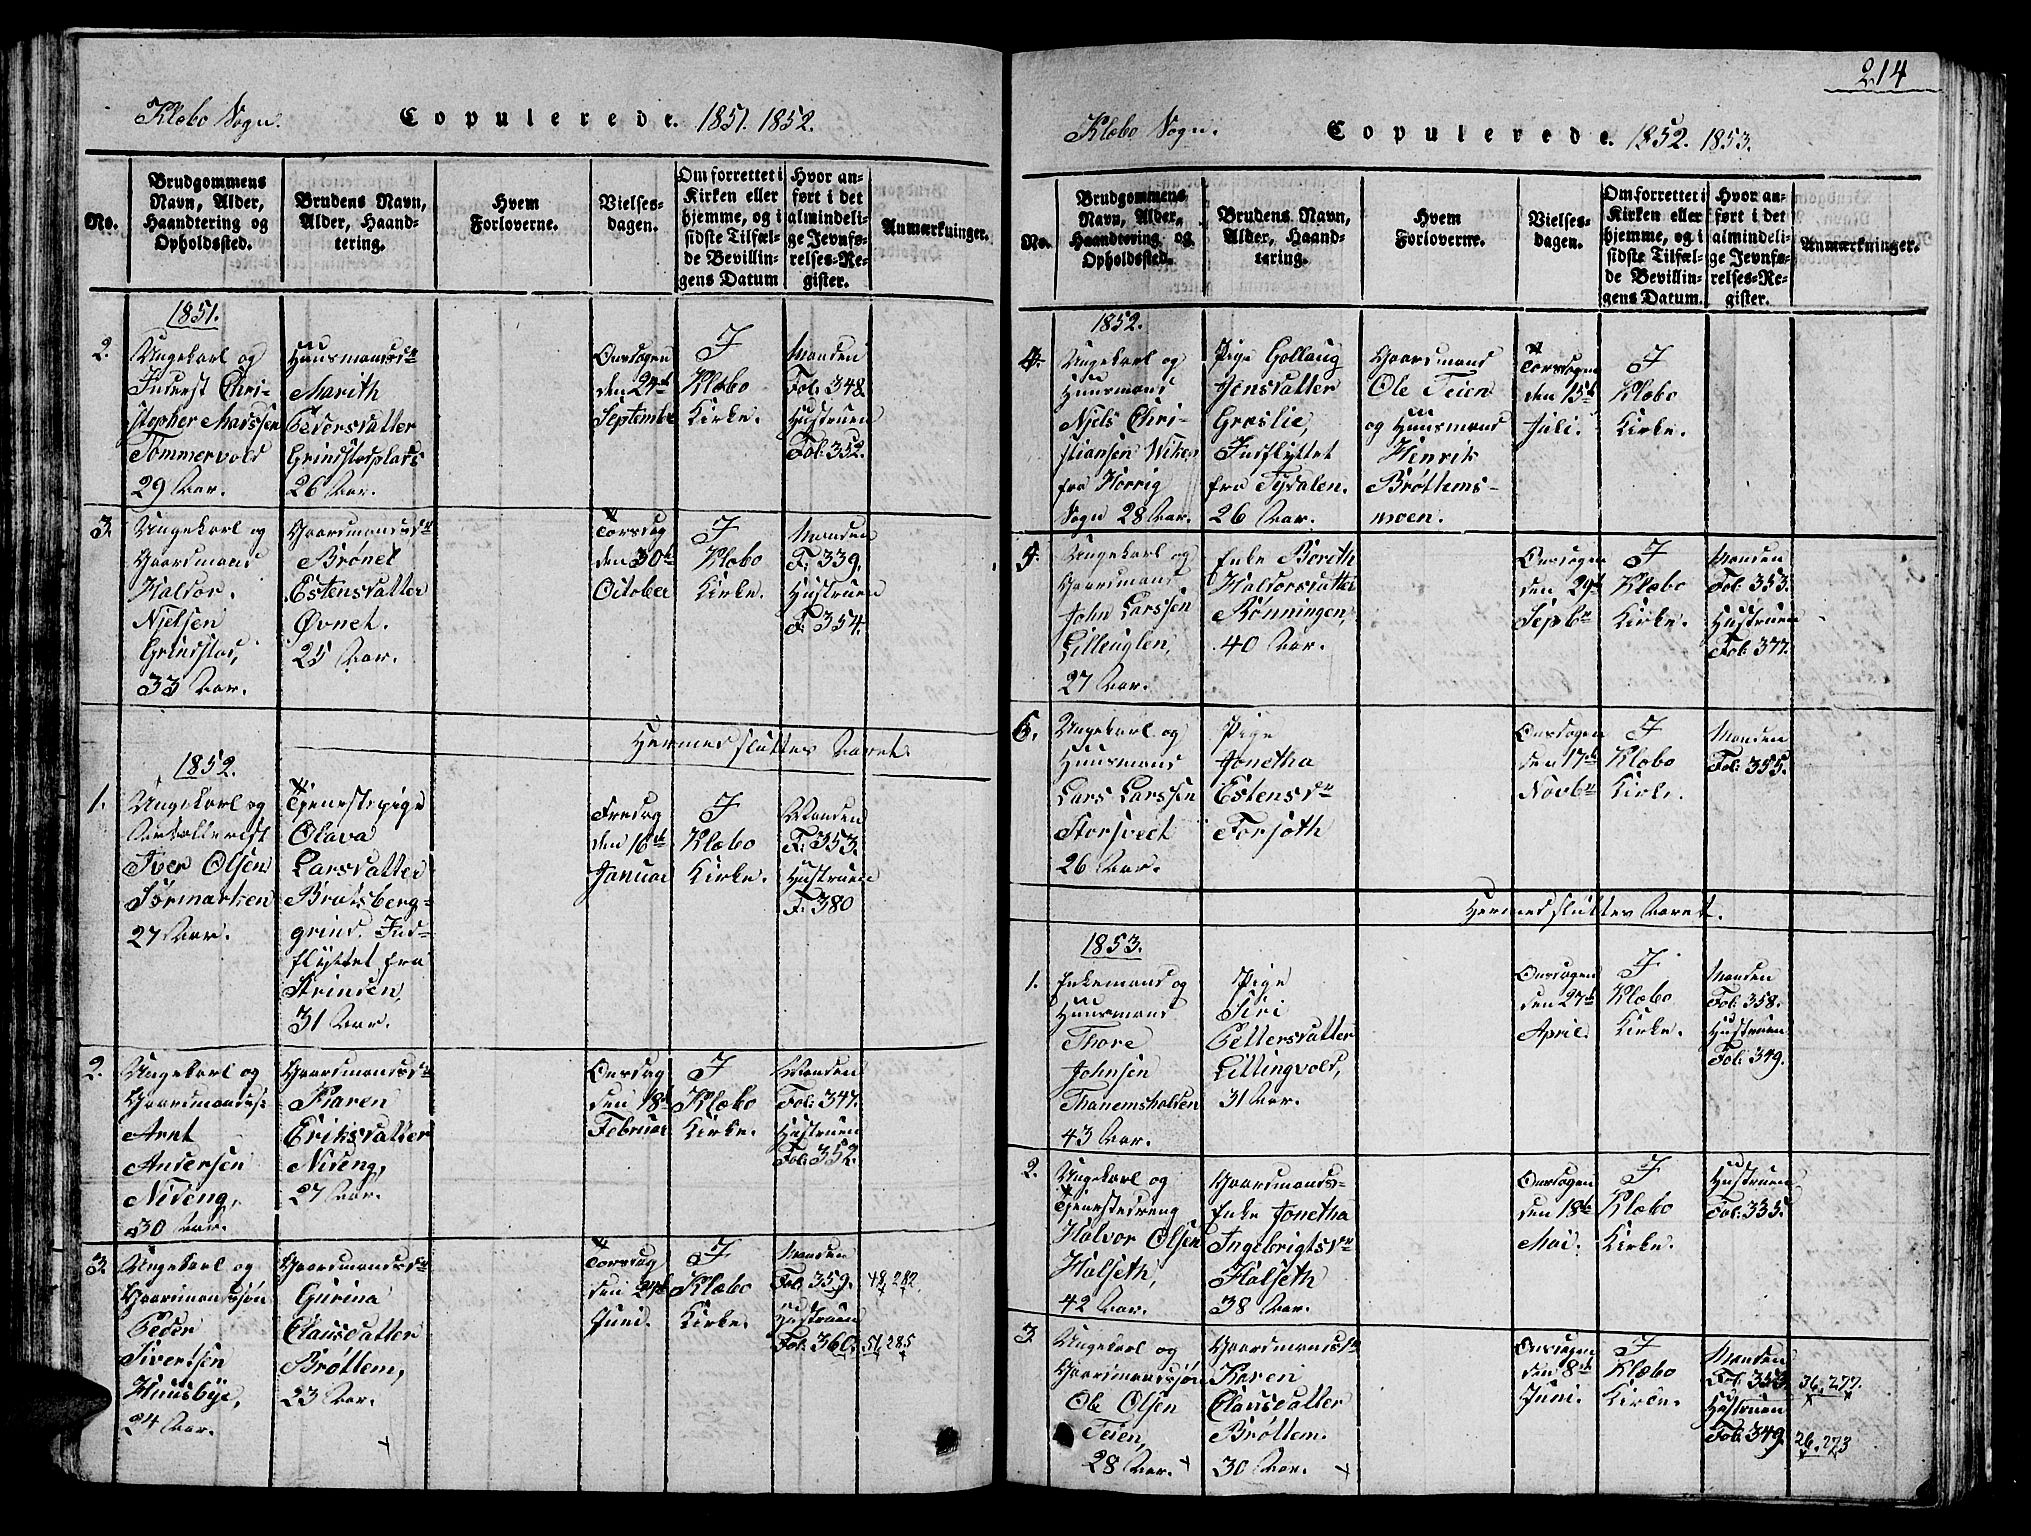 Klæbo Sogn. Copulerede. 1851. 1852.
No.
Brudgommens
Navn, Alder,
Haandtering og
Opholdssted.
Brudens Navn,
Alder, Haand-
tering.
Hvem
Forloverne.
Vielses-
dagen.
Om forrettet i
Kirken eller
hjemme, og i
sidste Tilfæl-
de Bevillin-
gens Datum
Hvor an-
ført i det
almindeli-
ge Jevnfø-
relses-Re-
gister.
Anmærkninger.
1851.
2.
Ungekarl og
Inderst Chri-
stopher Madssen
Tommervold
29 Aar.
Huusmandsdr
Marith
Pedersdatter
Grindstadplads
26 Aar.
Onsdagen
den 24de
September
I
Klæbo
Kirke.
Manden
Fol: 348.
Hustruen
Fol: 352.
3.
Ungekarl og
Gaardmand
Haldor
Nielsen
Grindstad,
33 Aar.
Gaardmandsdr
Brønet
Estensdatter
Øvnet.
25 Aar.
Torsdag
den 30te
October
I
Klæbo
Kirke.
Manden
F: 339.
Hustruen
F: 354.
Hermed sluttes Aaret.
1852.
1.
Ungekarl og
Artellerist
Iver Olsen
Sørmarken
27 Aar.
Tjenestepige
Olava
Larsdatter
Bratsberg-
grind. Ind-
flyttet fra
Strinden,
31 Aar.
Fredag
den 16de
Januar
I
Klæbo
Kirke.
Manden
F: 353.
Hustruen
F: 380
2.
Ungekarl og
Gaardmandss:
Arnt
Andersen
Nideng,
30 Aar.
Gaardmandsdr
Karen
Eriksdatter
Nideng,
27 Aar.
Onsdag
den 18de
Februar
I
Klæbo
Kirke.
Manden
Fol: 347.
Hustruen
Fol: 352.
3.
Ungekarl og
Gaardmandssøn
Peder
Sivertsen
Huusbye,
24 Aar.
Gaardmandsdr
Gurina
Clausdatter
Brøttem,
23 Aar.
Torsdag
den 24de
Juni.
I
Klæbo
Kirke.
Manden
Fol: 359.
Hustruen
Fol: 360.
48, 282.
51, 285
214
Klæbo Sogn. Copulerede. 1852. 1853.
No.
Brudgommens
Navn, Alder,
Haandtering og
Opholdssted.
Brudens Navn,
Alder, Haand-
tering.
Hvem
Forloverne.
Vielses-
dagen.
Om forrettet i
Kirken eller
hjemme, og i
sidste Tilfæl-
de Bevillin-
gens Datum.
Hvor an-
ført i det
almindeli-
ge Jevnfø-
relses-Re-
gister.
Anmærkninger.
1852.
4.
Ungekarl og
Huusmand
Niels Chri-
stiansen Wiken
fra Horrig
Sogn 28 Aar.
Pige Gollaug
Jensdatter
Græslie,
Indflyttet
fra Tydalen.
26 Aar.
Gaardmand
Ole Teien
og Huusmand
Henrik
Brøttems-
moen.
Torsdagen
den 15de
Juli.
I
Klæbo
Kirke.
5.
Ungekarl og
Gaardmand
John Larssen
Lilleuglen,
27 Aar.
Enke Berith
Haldorsdatter
Rønningen,
40 Aar.
Onsdagen
den 29de
Septbr
I
Klæbo
Kirke.
Manden
Fol: 353.
Hustruen
Fol: 377.
6.
Ungekarl og
Huusmand
Lars Larssen
Storsvedt
26 Aar.
Pige
Jonetha
Estensdr
Forsøth
Onsdagen
den 17de
Novbr
I
Klæbo
Kirke.
Manden
Fol: 355.
Hermed sluttes Aaret.
1853.
1.
Enkemand og
Huusmand
Thore
Johnsen
Thanemshalsen
43 Aar.
Pige
Siri
Pettersdatter
Littingvold,
31 Aar.
Onsdagen
den 27de
April.
I
Klæbo
Kirke.
Manden
Fol: 358.
Hustruen
Fol: 349.
2.
Ungekarl og
Tjenestedreng
Halvor Olsen
Halseth,
42 Aar.
Gaardmands-
Enke Jonetha
Ingebrigtsdr
Halseth
38 Aar.
Onsdagen
den 18de
Mai.
I
Klæbo
Kirke.
Hustruen
Fol: 335.
3.
Ungekarl og
Gaardmandssøn
Ole Olsen
Teien,
28 Aar.
Gaardmandsdr
Karen
Clausdatter
Brøttem.
30 Aar.
Onsdagen
den 8de
Juni.
I
Klæbo
Kirke.
Manden
Fol: 353.
Hustruen
Fol: 349.
36, 277.
26. 273